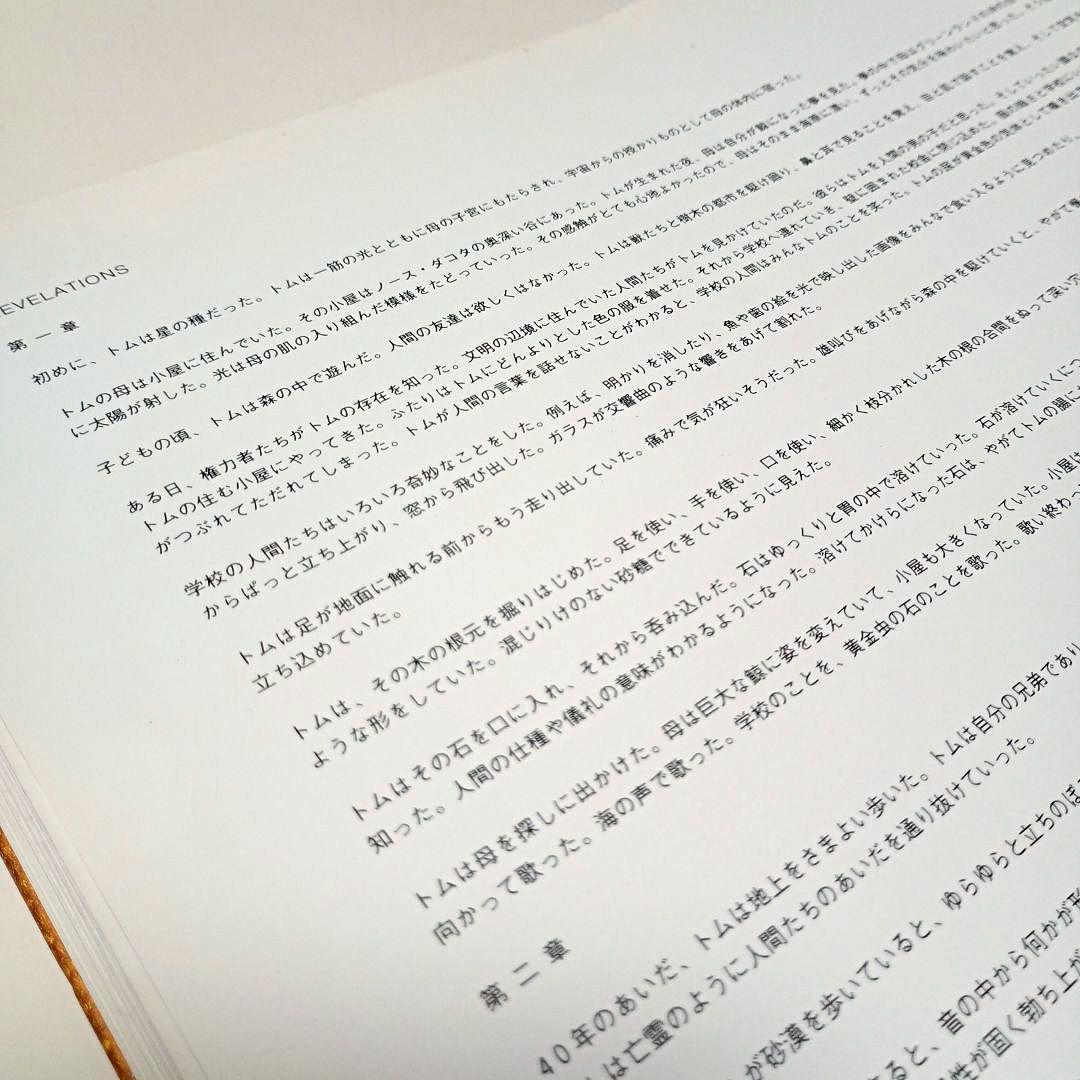 EVELATIONS
第一章
初めに、トムは星の種だった。トムは一筋の光とともに母の子宮にもたらされ、宇宙からの授かりものとして母の体内に宿った。
トムの母は小屋に住んでいた。その小屋はノース・ダコタの奥深い谷にあった。トムが生まれた夜、母は自分が鯨になった夢を見た。
に太陽が射した。光は母の肌の入り組んだ模様をたどっていった。その感触がとても心地よかったので、母はそのまま海原に漂い、
子どもの頃、トムは森の中で遊んだ。人間の友達は欲しくはなかった。トムは獣たちと樹木の都市を駆け廻り、鼻と耳で見ることを覚え、
ある日、権力者たちがトムの存在を知った。文明の辺境に住んでいた人間たちがトムを見かけていたのだ。彼らはトムを人間の男の子だと思った。
トムの住む小屋にやってきた。ふたりはトムにどんよりとした色の服を着せた。それから学校へ連れていき、壁に囲まれた校舎に閉じ込めた。
がつぶれてただれてしまった。トムが人間の言葉を話せないことがわかると、学校の人間はみんなトムのことを笑った。
学校の人間たちはいろいろ奇妙なことをした。例えば、明かりを消したり、魚や歯の絵を光で映し出した画像をみんなで食い入るように見つめたり。
からぱっと立ち上がり、窓から飛び出した。ガラスが交響曲のような響きをあげて割れた。
トムは足が地面に触れる前からもう走り出していた。痛みで気が狂いそうだった。雄叫びをあげながら森の中を駆けていくと、やがて
立ち込めていた。
トムは、その木の根元を掘りはじめた。足を使い、手を使い、口を使い、細かく枝分かれした木の根の合間をぬって深い穴
ような形をしていた。混じりけのない砂糖でできているように見えた。
トムはその石を口に入れ、それから呑み込んだ。石はゆっくりと胃の中で溶けていった。石が溶けていくにつ
知った。人間の仕種や儀礼の意味がわかるようになった。溶けてかけらになった石は、やがてトムの腸に
トムは母を探しに出かけた。母は巨大な鯨に姿を変えていて、小屋も大きくなっていた。小屋は
向かって歌った。海の声で歌った。学校のことを、黄金虫の石のことを歌った。歌い終わっ
第二章
40年のあいだ、トムは地上をさまよい歩いた。トムは自分の兄弟であり
は亡霊のように人間たちのあいだを通り抜けていった。
が砂漠を歩いていると、ゆらゆらと立ちのぼ
ると、音の中から何かが形
性が固く勃ち上が